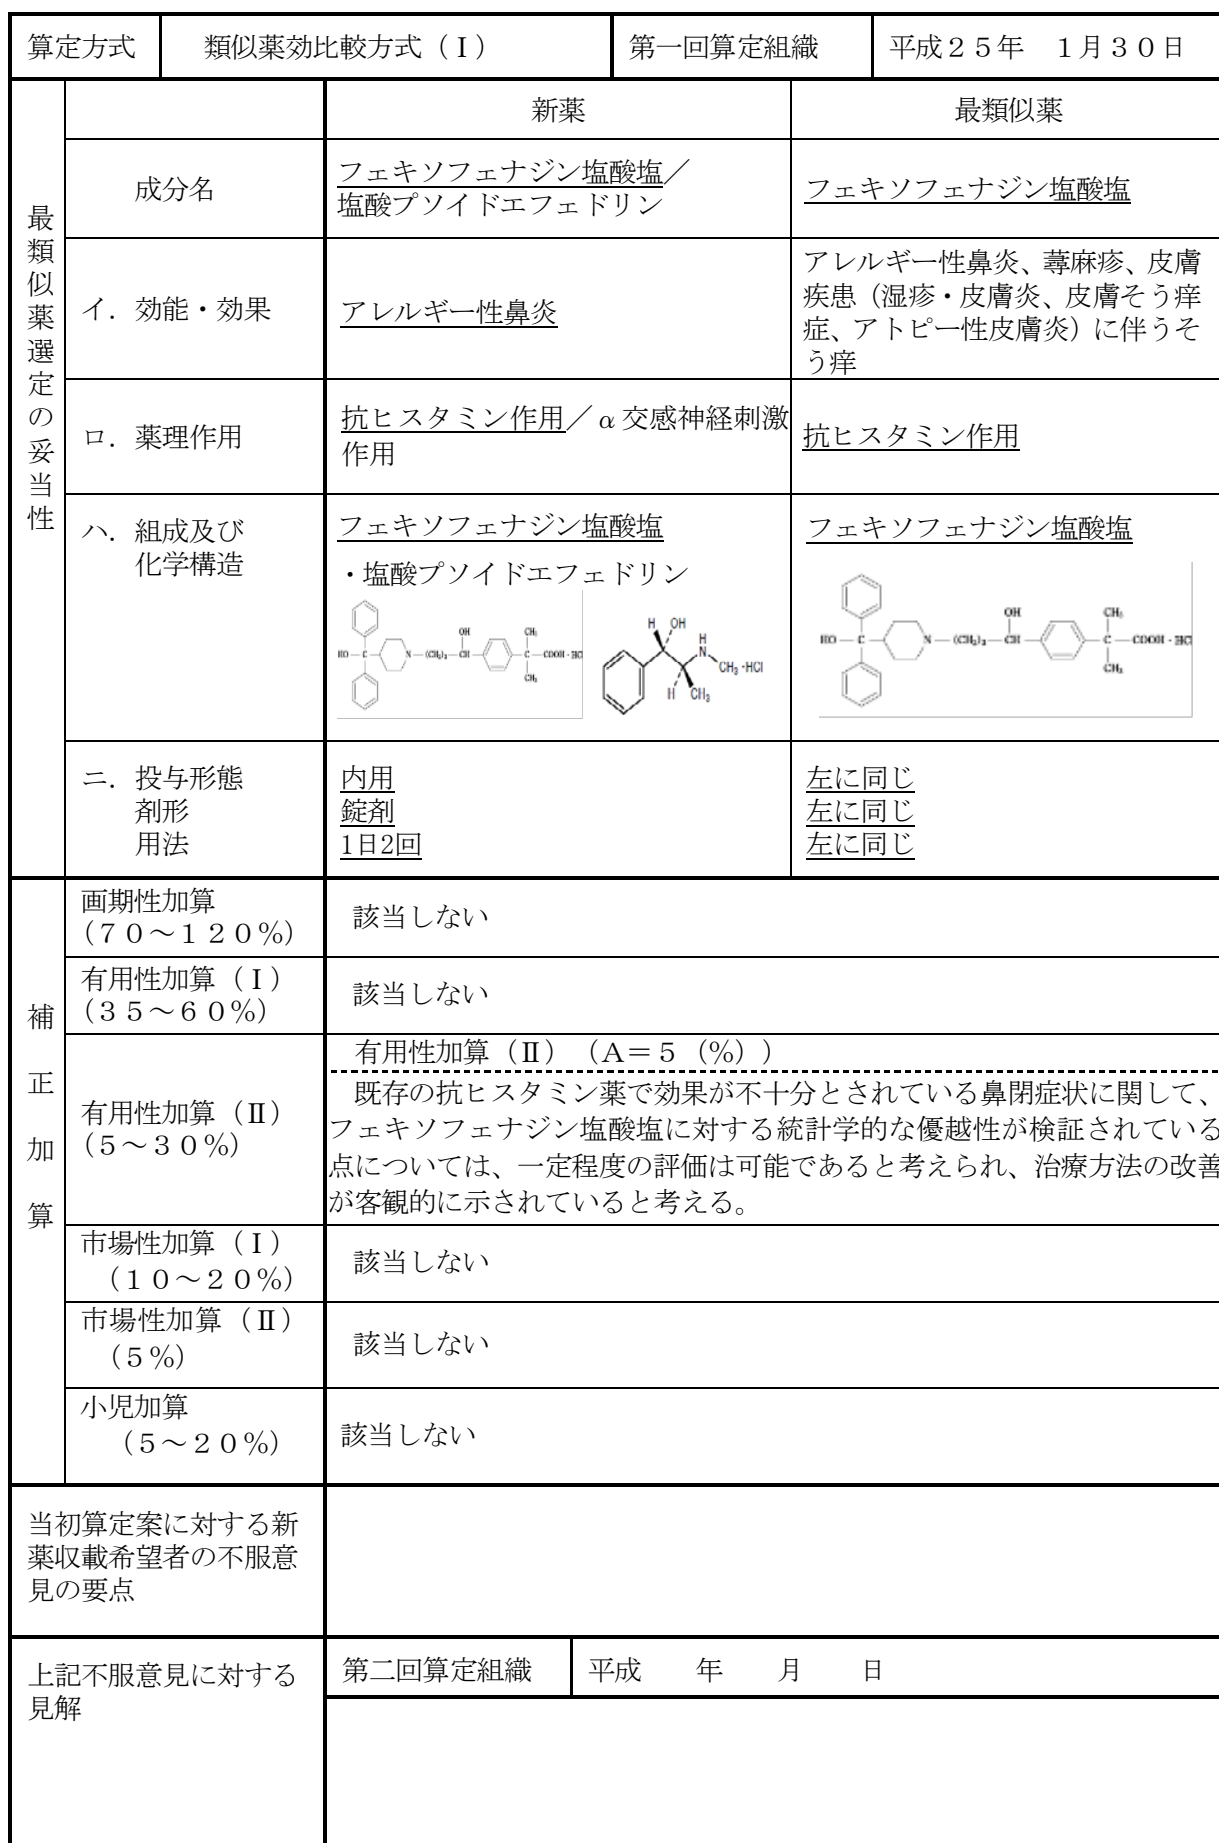 算定方式 類似薬効比較方式（Ⅰ） 第一回算定組織 平成２５年　１月３０日
最類似薬選定の妥当性
新薬 最類似薬
成分名
フェキソフェナジン塩酸塩／
塩酸プソイドエフェドリン
フェキソフェナジン塩酸塩
イ．効能・効果
アレルギー性鼻炎
アレルギー性鼻炎、蕁麻疹、皮膚
疾患（湿疹・皮膚炎、皮膚そう痒
症、アトピー性皮膚炎）に伴うそ
う痒
ロ．薬理作用
抗ヒスタミン作用／α交感神経刺激
作用
抗ヒスタミン作用
ハ．組成及び
化学構造
フェキソフェナジン塩酸塩
・塩酸プソイドエフェドリン
OH CH₃
HO—C N—(CH₂)₃—CH C—COOH・HCl
CH₃
H OH
H
N
CH₃・HCl
H CH₃
フェキソフェナジン塩酸塩
OH CH₃
HO—C N—(CH₂)₃—CH C—COOH・HCl
CH₃
ニ．投与形態
剤形
用法
内用
錠剤
1日2回
左に同じ
左に同じ
左に同じ
補正加算
画期性加算
（７０～１２０％）
該当しない
有用性加算（Ⅰ）
（３５～６０％）
該当しない
有用性加算（Ⅱ）
（５～３０％）
有用性加算（Ⅱ）（Ａ＝５（％））
既存の抗ヒスタミン薬で効果が不十分とされている鼻閉症状に関して、
フェキソフェナジン塩酸塩に対する統計学的な優越性が検証されている
点については、一定程度の評価は可能であると考えられ、治療方法の改善
が客観的に示されていると考える。
市場性加算（Ⅰ）
（１０～２０％）
該当しない
市場性加算（Ⅱ）
（５％）
該当しない
小児加算
（５～２０％）
該当しない
当初算定案に対する新
薬収載希望者の不服意
見の要点
上記不服意見に対する
見解
第二回算定組織 平成　　年　　月　　日